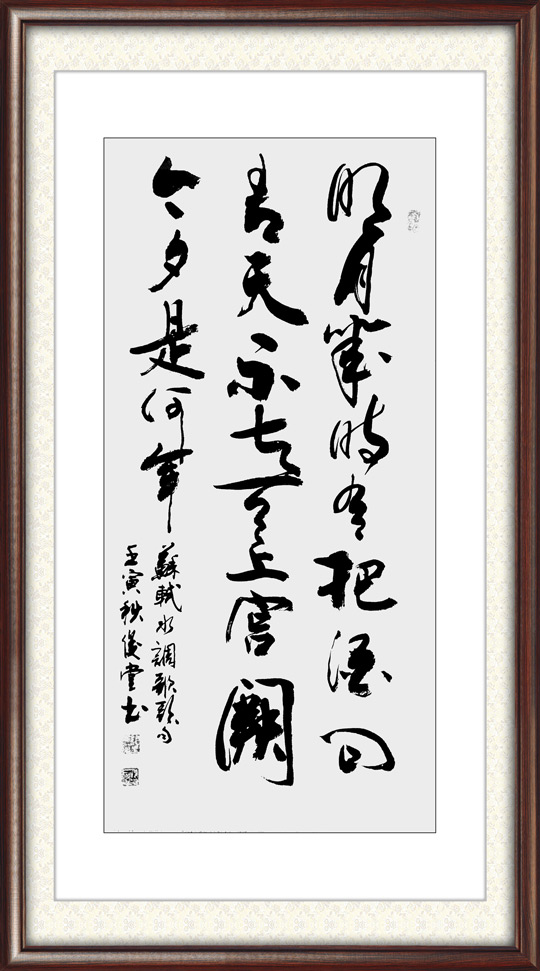 明月幾時有把酒問
青天不知天上宮闕
今夕是何年
蘇軾水調歌頭句
壬寅秋俊堂书